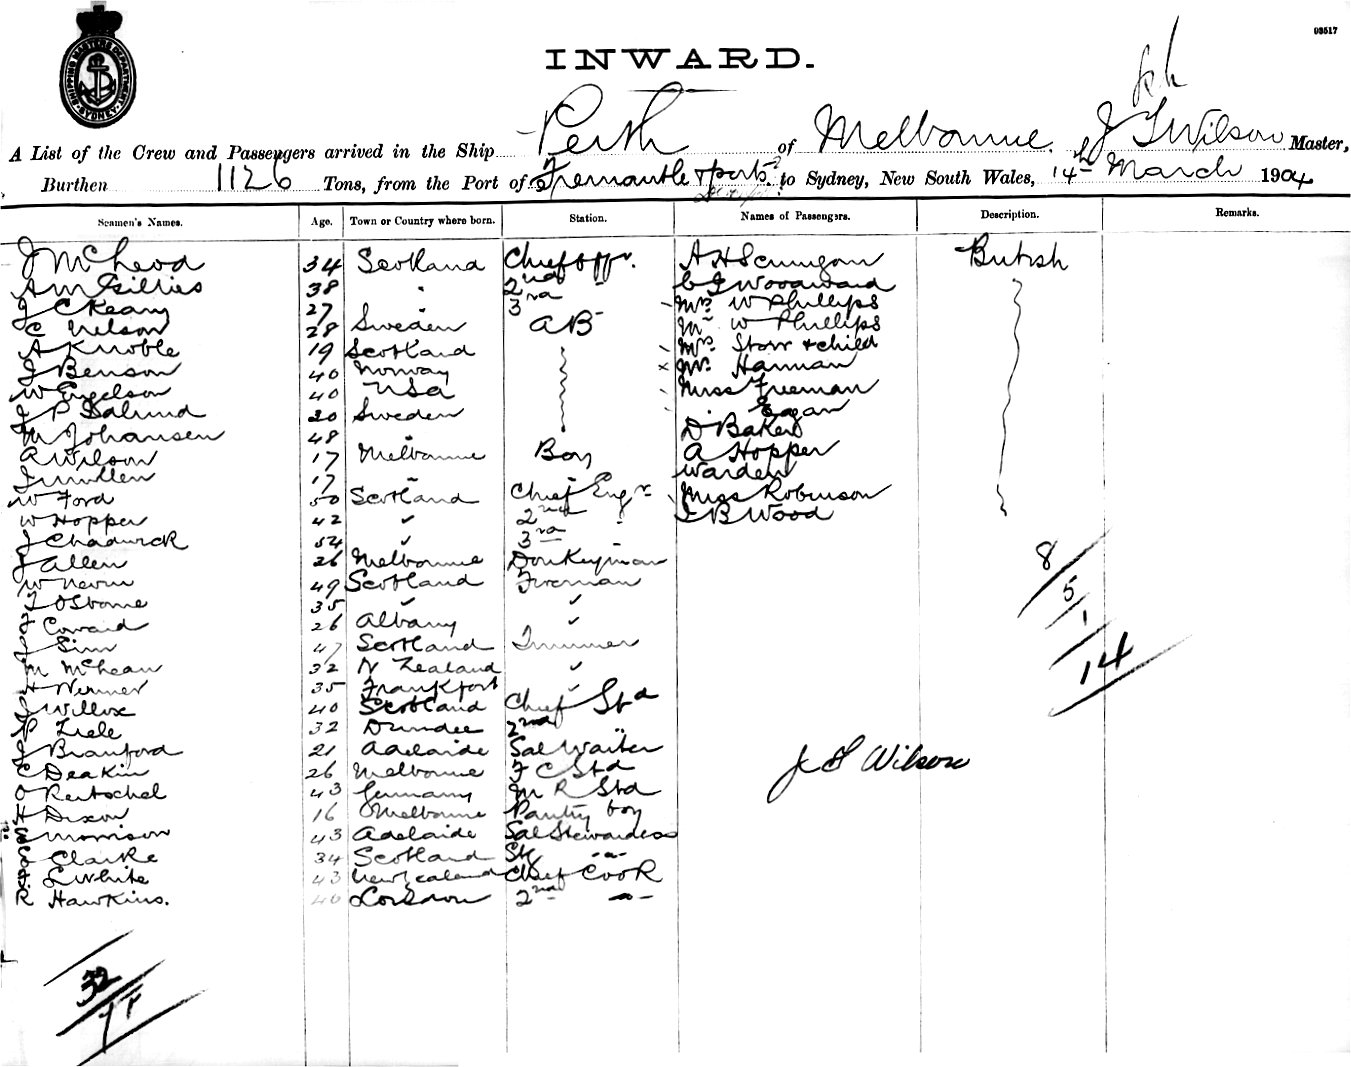 SHIPPING MASTERS DEPARTMENT SYDNEY
03517
INWARD.
A List of the Crew and Passengers arrived in the Ship Perth of Melbourne. J Wilson Master,
Burthen 1126 Tons, from the Port of Fremantle & ports to Sydney, New South Wales, 14th March 1904
Seamen's Names. Age. Town or Country where born. Station. Names of Passengers. Description. Remarks.
J McLeod 34 Scotland Chief Offr. A H Scrimgour British
A McGillies 38 " 2nd C G Woodward
J C Keany 27 " 3rd Mrs W Phillips
C Nelson 28 Sweden AB Mr W Phillips
A K Noble 19 Scotland Mrs Storr & child
J Benson 40 Norway Mr. Hannan
W Engelson 40 USA Miss Freeman
J P Salund 20 Sweden Eagan
M Johansen 48 " D Baker
A Wilson 17 Melbourne Boy A Hopper
J Mullen 17 " " Warden
W Ford 50 Scotland Chief Engr Miss Robinson
W Hopper 42 ✓ 2nd " J B Wood
J Chadwick 54 ✓ 3rd
J Allen 26 Melbourne Donkeyman 8
W Nevin 49 Scotland Fireman 5
T Osborne 35 ✓ ✓ 1
F Coward 26 Albany ✓
J Sim 47 Scotland Trimmer 14
M McLean 32 N Zealand ✓
H Werner 35 Frankfort ✓
J Willox 40 Scotland Chief Std
P Liele 32 Dundee 2nd "
J Branford 21 Adelaide Sal Waiter J S Wilson
C Deakin 26 Melbourne F C Std
O Rentschel 43 Germany M R Std
H Dixon 16 Melbourne Pantry boy
Morrison 43 Adelaide Sal Stewardess
Clarke 34 Scotland Stg -"-
L White 43 New Zealand Chief Cook
R Hawkins. 40 London 2nd -"-
32